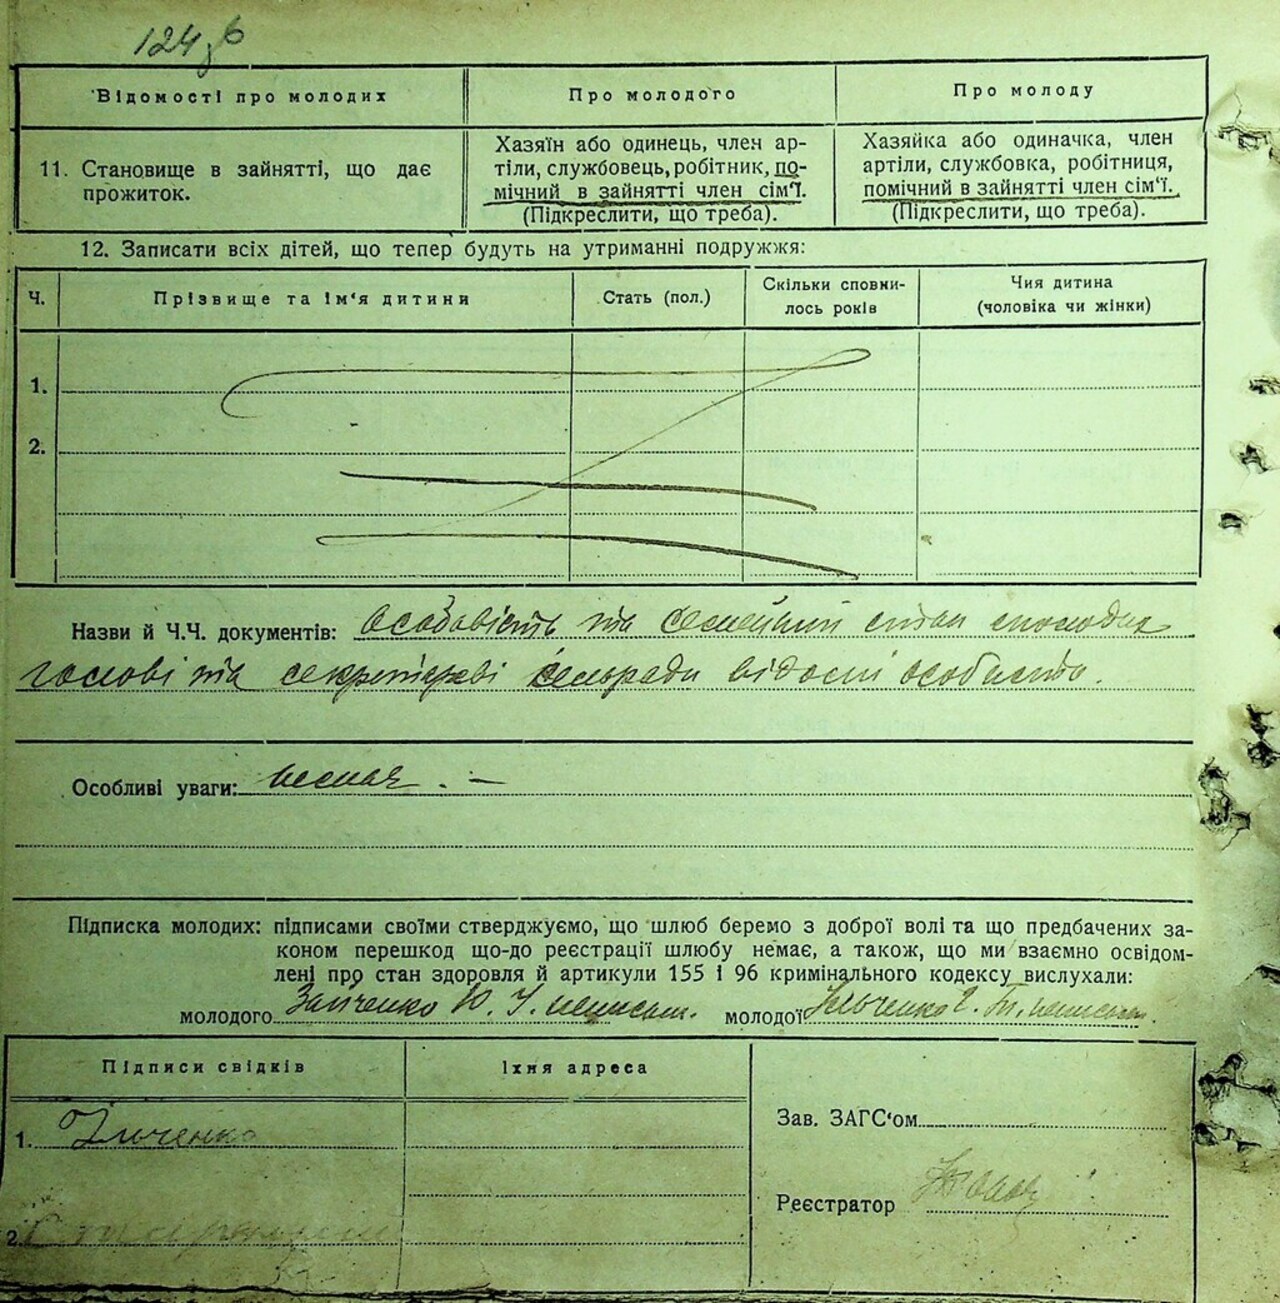 124 зв
Відомості про молодих
Про молодого
Про молоду
11. Становище в зайнятті, що дає
прожиток.
Хазяїн або одинець, член ар-
тілі, службовець, робітник, по-
мічний в зайнятті член сім'ї.
(Підкреслити, що треба).
Хазяйка або одиначка, член
артілі, службовка, робітниця,
помічний в зайнятті член сім'ї.
(Підкреслити, що треба).
12. Записати всіх дітей, що тепер будуть на утриманні подружжя:
Ч.
Прізвище та ім'я дитини
Стать (пол.)
Скільки сповни-
лось років
Чия дитина
(чоловіка чи жінки)
1.
2.
Назви й Ч.Ч. документів: Особавість та семейний стан молодих
голові та секретареві сельради відомі особисто.
Особливі уваги: немає. —
Підписка молодих: підписами своїми стверджуємо, що шлюб беремо з доброї волі та що предбачених за-
коном перешкод що-до реєстрації шлюбу немає, а також, що ми взаємно освідом-
лені про стан здоровля й артикули 155 і 96 кримінального кодексу вислухали:
молодого Зайченко Ю. І. неписьм. молодої Ільченко Г. Т. неписьм.
Підписи свідків
Їхня адреса
1. Ільченко
2.
Зав. ЗАГС'ом
Реєстратор